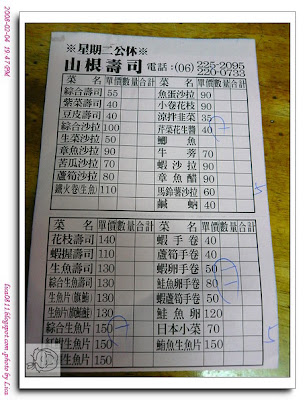 2008-02-04 19:47PM
※星期二公休※
山根壽司 電話:(06) 225-2095
220-0733
菜 名 單價 數量 合計 菜 名 單價 數量 合計
綜合壽司 55 魚蛋沙拉 90
紫菜壽司 40 小卷花枝 90
豆皮壽司 40 涼拌韭菜 35
綜合沙拉 100 芹菜花生醬 40
生菜沙拉 50 鯽魚
章魚沙拉 90 牛蒡 70
苦瓜沙拉 70 蝦沙拉 90
蘆筍沙拉 80 章魚醋 90
鐵火卷(生魚) 110 馬鈴薯沙拉 60
鹹蜊 40
菜 名 單價 數量 合計 菜 名 單價 數量 合計
花枝壽司 140 蝦手卷 40
蝦握壽司 110 蘆筍手卷 40
生魚壽司 130 蝦卵手卷 50
綜合生壽司 130 鮭魚卵手卷 80
生魚片(旗魚) 130 蝦蘆筍手卷 50
生魚片(旗鮪) 130 鮭魚卵 120
綜合生魚片 150 日本小菜 70
生魚片 150 鮪魚生魚片 150
生魚片 150
lisa0811.blogspot.com-photo by Lisa